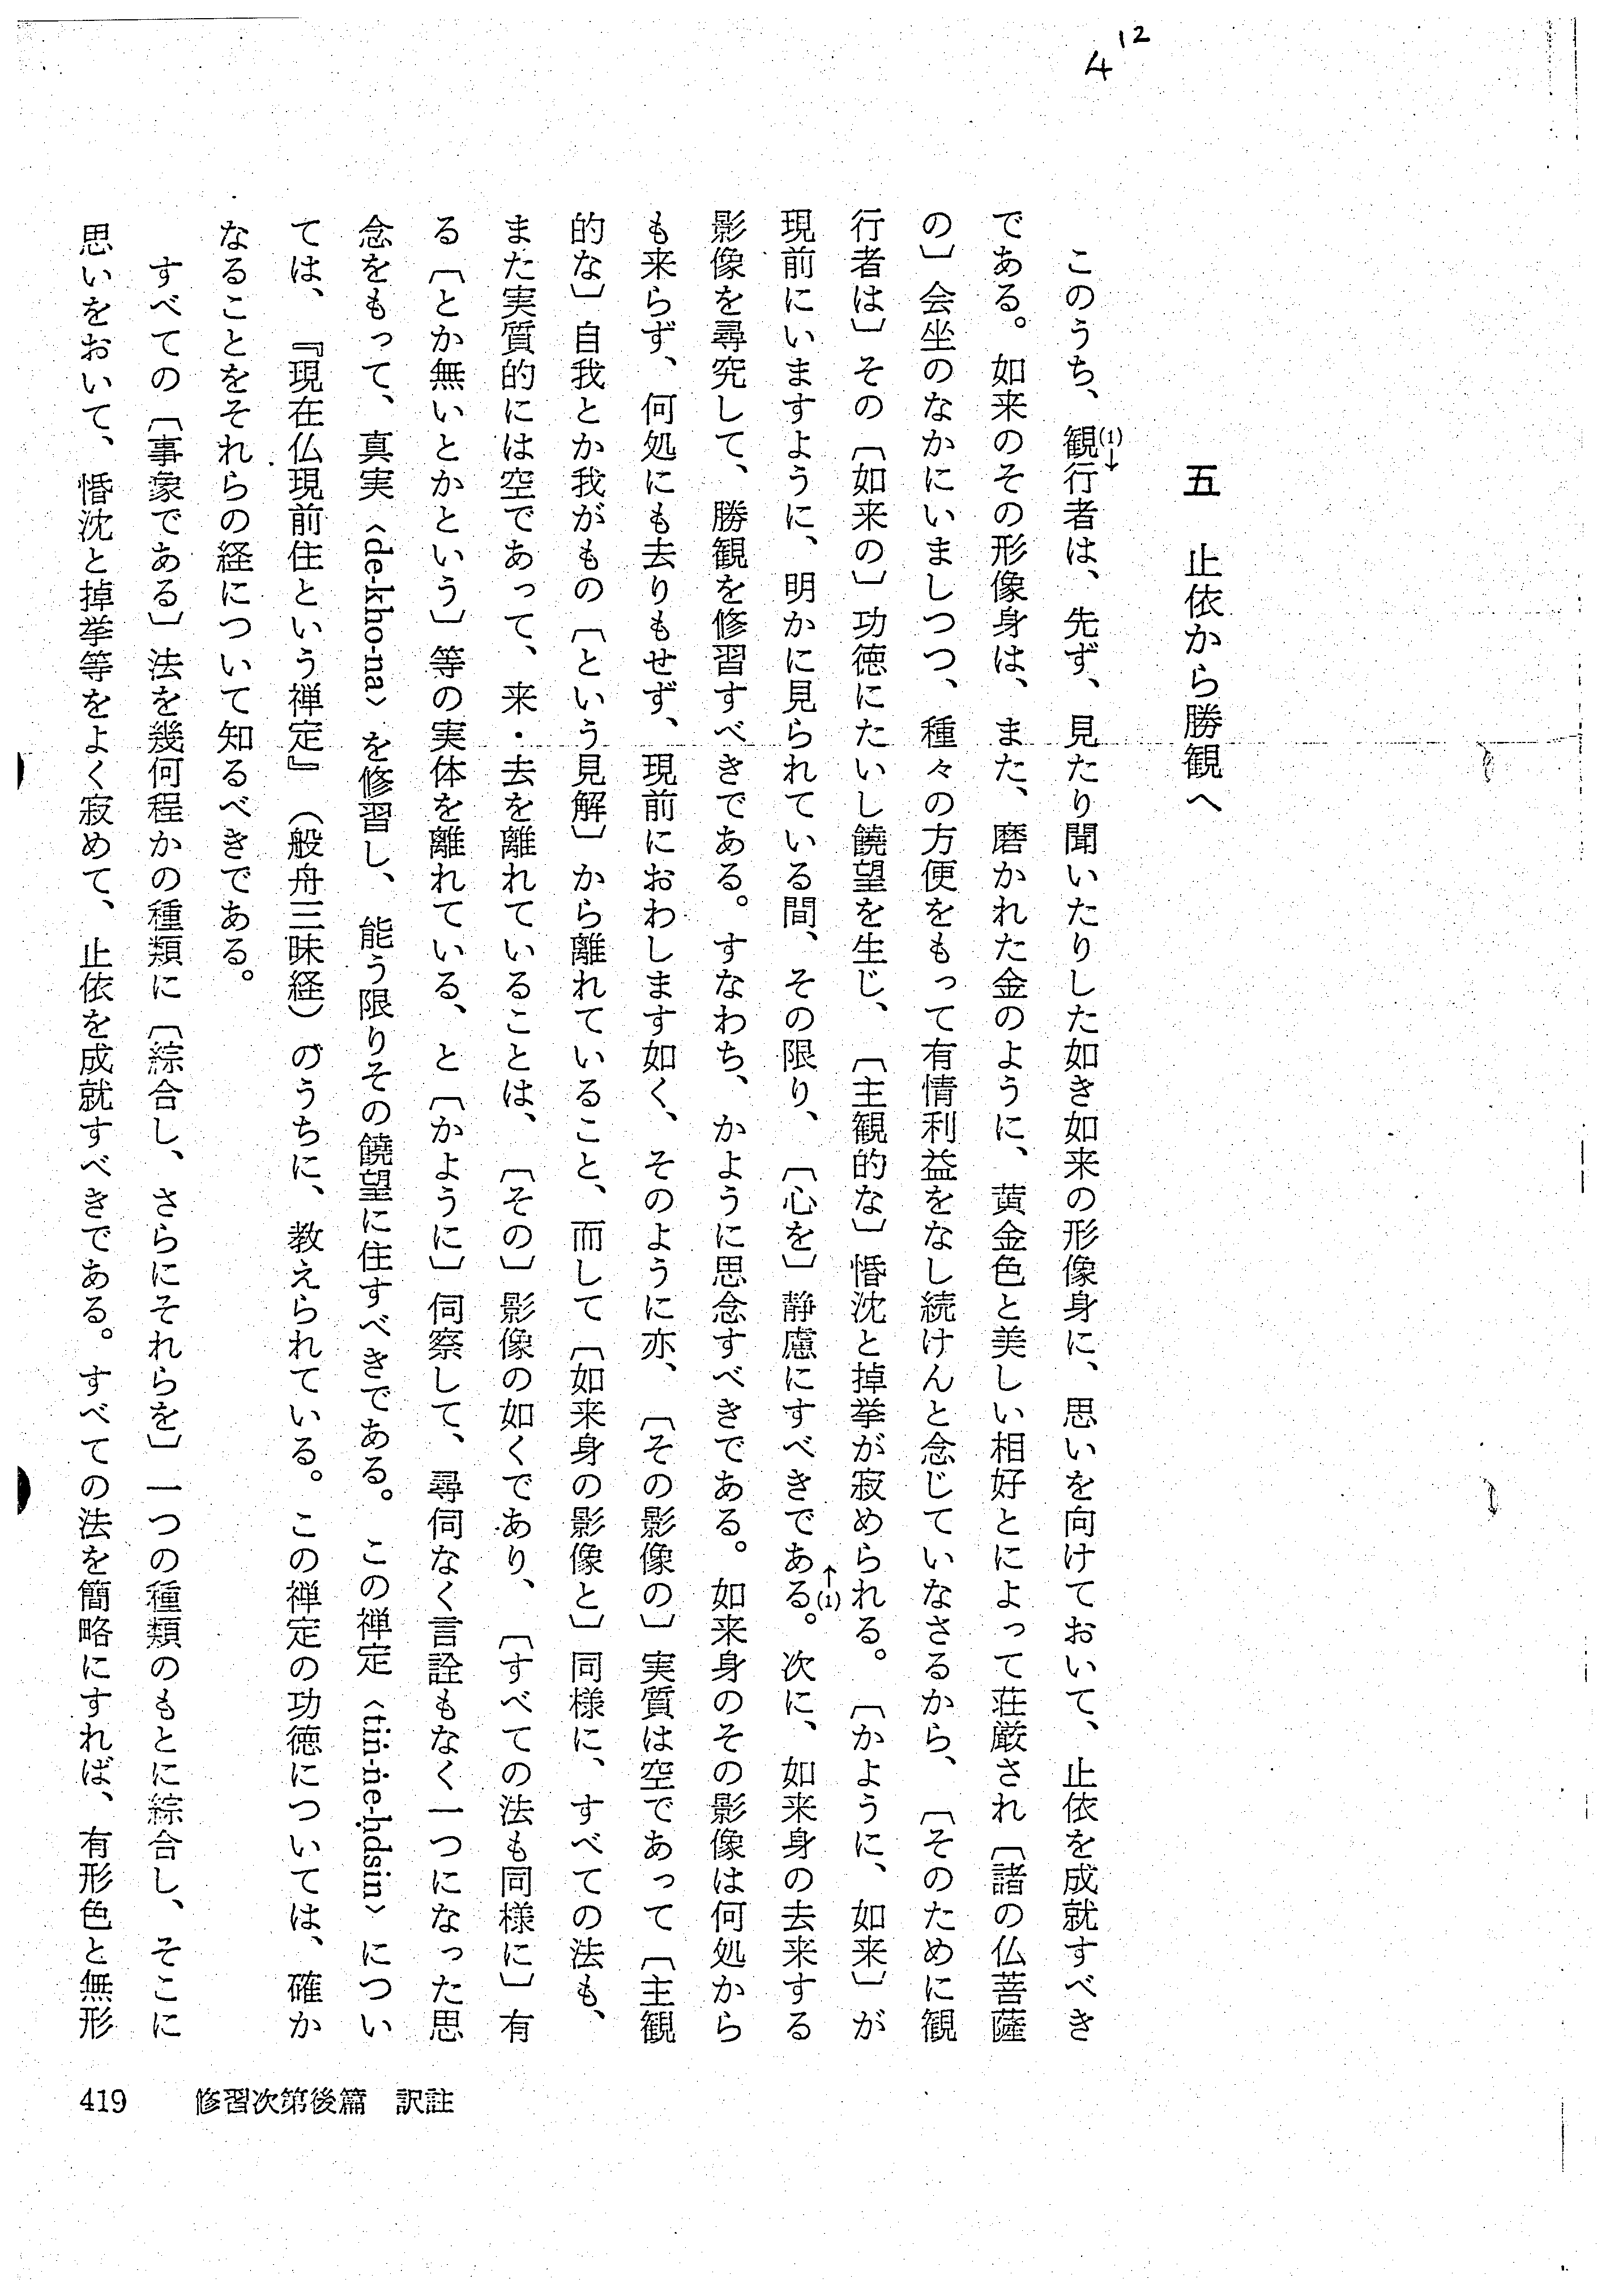 12
4
五　止依から勝観へ
このうち、観(1)↓行者は、先ず、見たり聞いたりした如き如来の形像身に、思いを向けておいて、止依を成就すべき
である。如来のその形像身は、また、磨かれた金のように、黄金色と美しい相好とによって荘厳され〔諸の仏菩薩
の〕会坐のなかにいましつつ、種々の方便をもって有情利益をなし続けんと念じていなさるから、〔そのために観
行者は〕その〔如来の〕功徳にたいし饒望を生じ、〔主観的な〕惛沈と掉挙が寂められる。〔かように、如来〕が
現前にいますように、明かに見られている間、その限り、〔心を〕静慮にすべきである↑(1)。次に、如来身の去来する
影像を尋究して、勝観を修習すべきである。すなわち、かように思念すべきである。如来身のその影像は何処から
も来らず、何処にも去りもせず、現前におわします如く、そのように亦、〔その影像の〕実質は空であって〔主観
的な〕自我とか我がもの〔という見解〕から離れていること、而して〔如来身の影像と〕同様に、すべての法も、
また実質的には空であって、来・去を離れていることは、〔その〕影像の如くであり、〔すべての法も同様に〕有
る〔とか無いとかという〕等の実体を離れている、と〔かように〕伺察して、尋伺なく言詮もなく一つになった思
念をもって、真実〈de-kho-na〉を修習し、能う限りその饒望に住すべきである。この禅定〈tiṅ-ṅe-ḥdsin〉につい
ては、『現在仏現前住という禅定』（般舟三昧経）のうちに、教えられている。この禅定の功徳については、確か
なることをそれらの経について知るべきである。
すべての〔事象である〕法を幾何程かの種類に〔綜合し、さらにそれらを〕一つの種類のもとに綜合し、そこに
思いをおいて、惛沈と掉挙等をよく寂めて、止依を成就すべきである。すべての法を簡略にすれば、有形色と無形
419　修習次第後篇　訳註